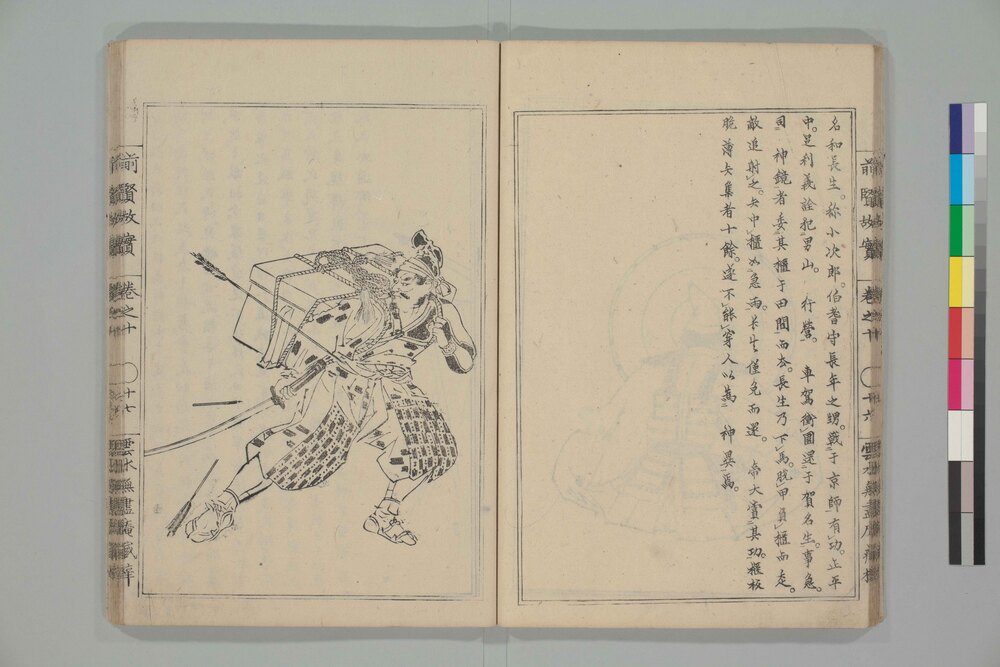 名和長生。称小次郎。伯耆守長年之甥。戰于京師有功。正平
中。足利義詮犯男山。行營。車駕衝圍還于賀名生。事急。
司神鏡者委其櫃于田間而去。長生乃下馬。脱甲負櫃而走。
敵追射之。矢中櫃如急雨。長生僅免而還。帝大賞其功。櫃板
脆薄矢集者十餘。遂不能穿人以為神異焉。
前賢故實
卷之十
十六
前賢故實
卷之十
十七
雲水無盡庵藏梓